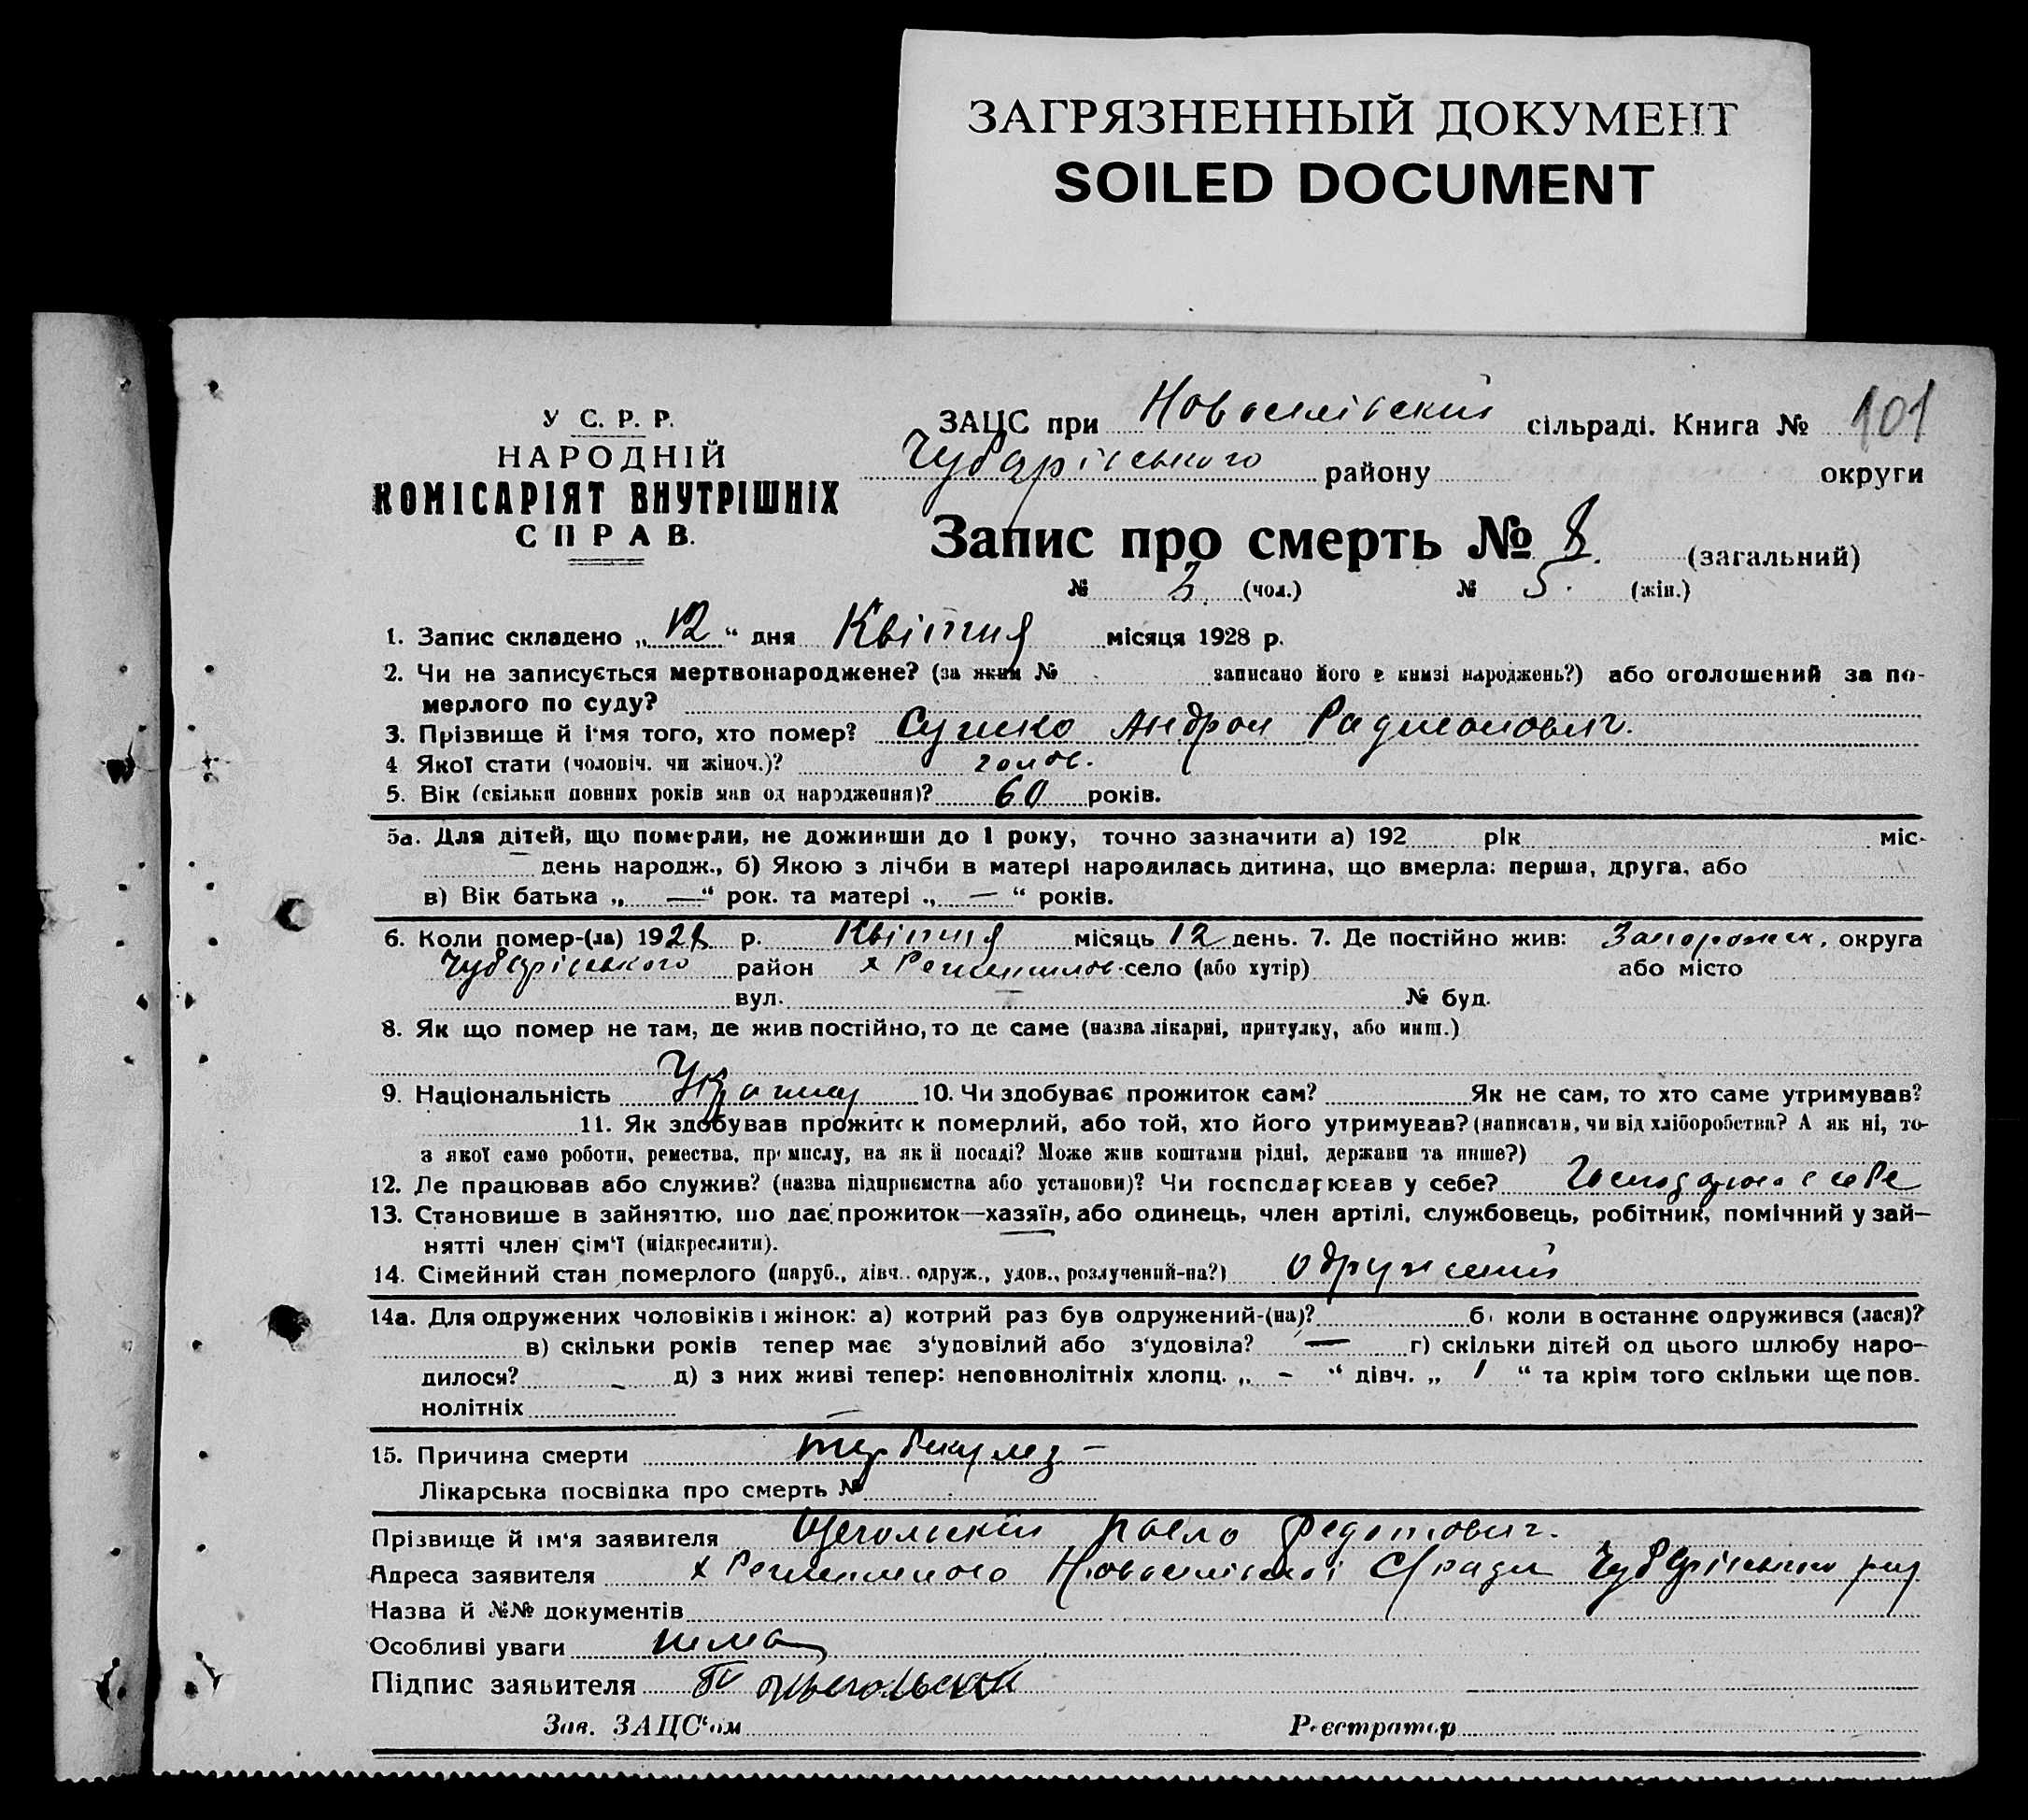 ЗАГРЯЗНЕННЫЙ ДОКУМЕНТ
SOILED DOCUMENT
У С. Р. Р.
НАРОДНІЙ
КОМІСАРІЯТ ВНУТРІШНІХ
СПРАВ.
ЗАЦС при сільраді. Книга № 101
Чубарівського району округи
Запис про смерть № 8. (загальний)
№ 3. (чол.) № 5. (жін.)
1. Запис складено „12“ дня Квітня місяця 1928 р.
2. Чи не записується мертвонароджене? (за яким № записано його в книзі народжень?) або оголошений за по-
мерлого по суду?
3. Прізвище й ім'я того, хто помер? Сушко Андрон Радионович.
4 Якої стати (чоловіч. чи жіноч.)? чолов.
5. Вік (скільки повних років мав од народження)? 60 років.
5а. Для дітей, що померли, не доживши до 1 року, точно зазначити а) 192 рік міс-
день народж., б) Якою з лічби в матері народилась дитина, що вмерла: перша, друга, або
в) Вік батька „—“ рок. та матері „—“ років.
6. Коли помер-(ла) 1928 р. Квітня місяць 12 день. 7. Де постійно жив: Запорожск. округа
Чубарівського район х село (або хутір) або місто
вул. — № буд.
8. Як що помер не там, де жив постійно, то де саме (назва лікарні, притулку, або инш.)
9. Національність 10. Чи здобуває прожиток сам? Як не сам, то хто саме утримував?
11. Як здобував прожиток померлий, або той, хто його утримував? (написати, чи від хліборобства? А як ні, то-
з якої само роботи, ремества, промислу, на якій посаді? Може жив коштами рідні, держави та инше?)
12. Де працював або служив? (назва підприємства або установи)? Чи господарював у себе?
13. Становище в зайняттю, що дає прожиток—хазяїн, або одинець, член артілі, службовець, робітник, помічний у зай-
нятті член сім'ї (підкреслити).
14. Сімейний стан померлого (паруб., дівч.. одруж., удов., розлучений-на?) одружений
14а. Для одружених чоловіків і жінок: а) котрий раз був одружений-(на)? б) коли в останнє одружився (лася)?
в) скільки років тепер має з'удовілий або з'удовіла? — г) скільки дітей од цього шлюбу наро-
дилося? - д) з них живі тепер: неповнолітніх хлопц. „ - “ дівч. „ 1 “ та крім того скільки ще пов.
нолітніх
15. Причина смерти туберкульоз —
Лікарська посвідка про смерть №
Прізвище й ім'я заявителя Щегольский Павло Федотович.
Адреса заявителя х Новоселівської С/ради Чубарівського рай
Назва й №№ документів
Особливі уваги нема
Підпис заявителя
Зав. ЗАЦС'ом Реєстратор